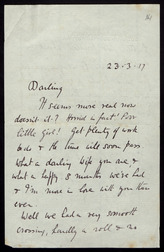 23-3-17
Darling
It seems more real now
doesn't it? Horrid in fact! Poor
little girl! Get plenty of work
to do & the time will soon pass.
What a darling wife you are, &
what a happy 8 months we've had
& I'm more in love with you than
ever.
Well we had a very smooth
crossing, hardly a roll & no